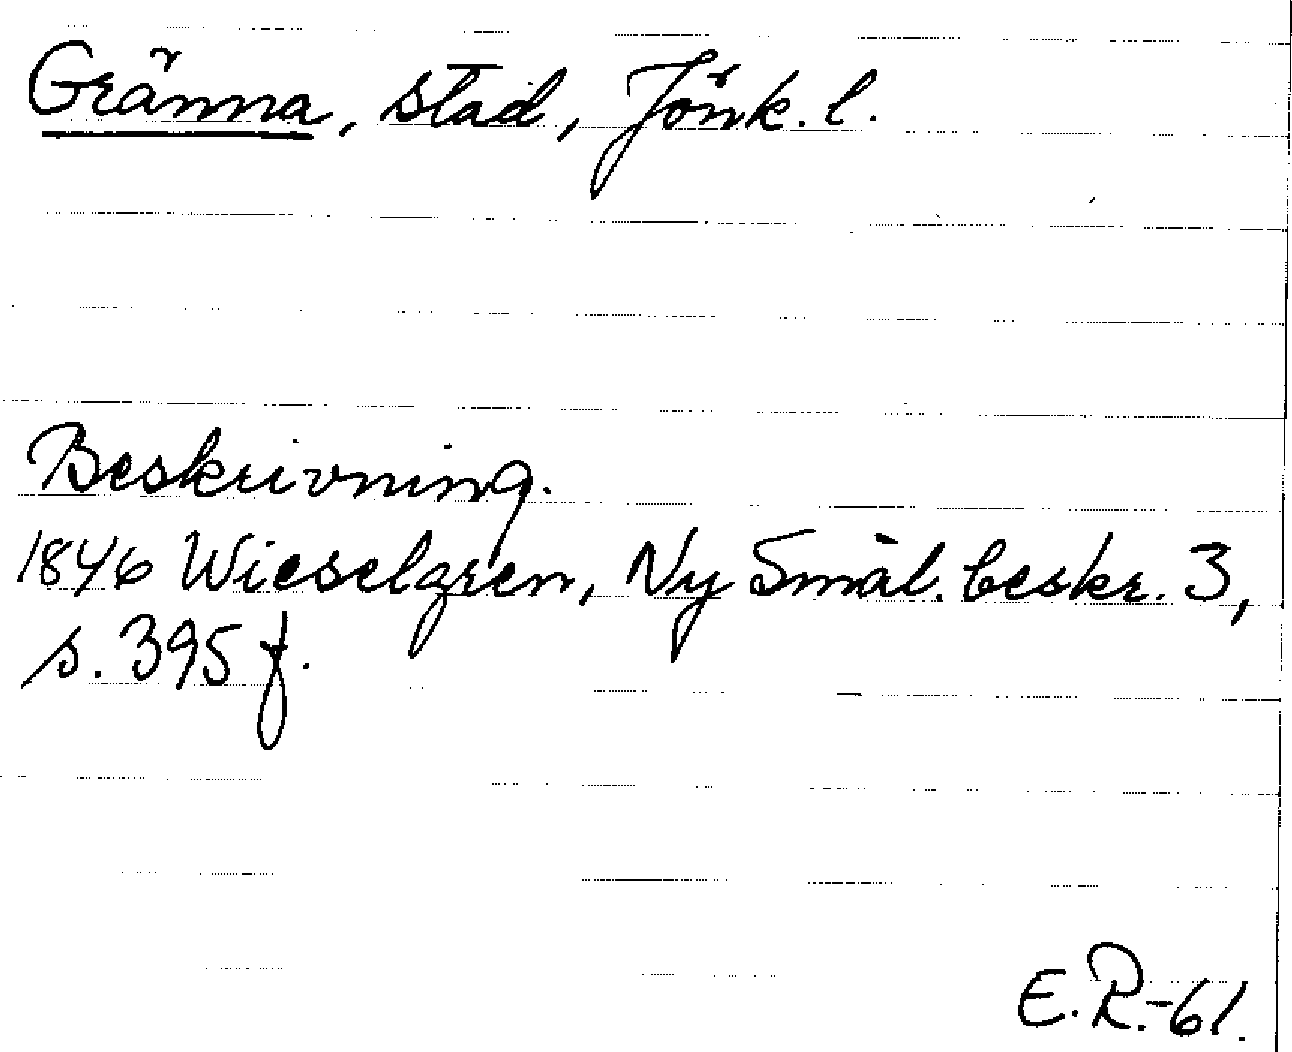 Gränna, stad, Jönk. l.
Beskrivning.
1846 Wieselgren, Ny Smål. beskr. 3,
s. 395 f.
E.R.-61.